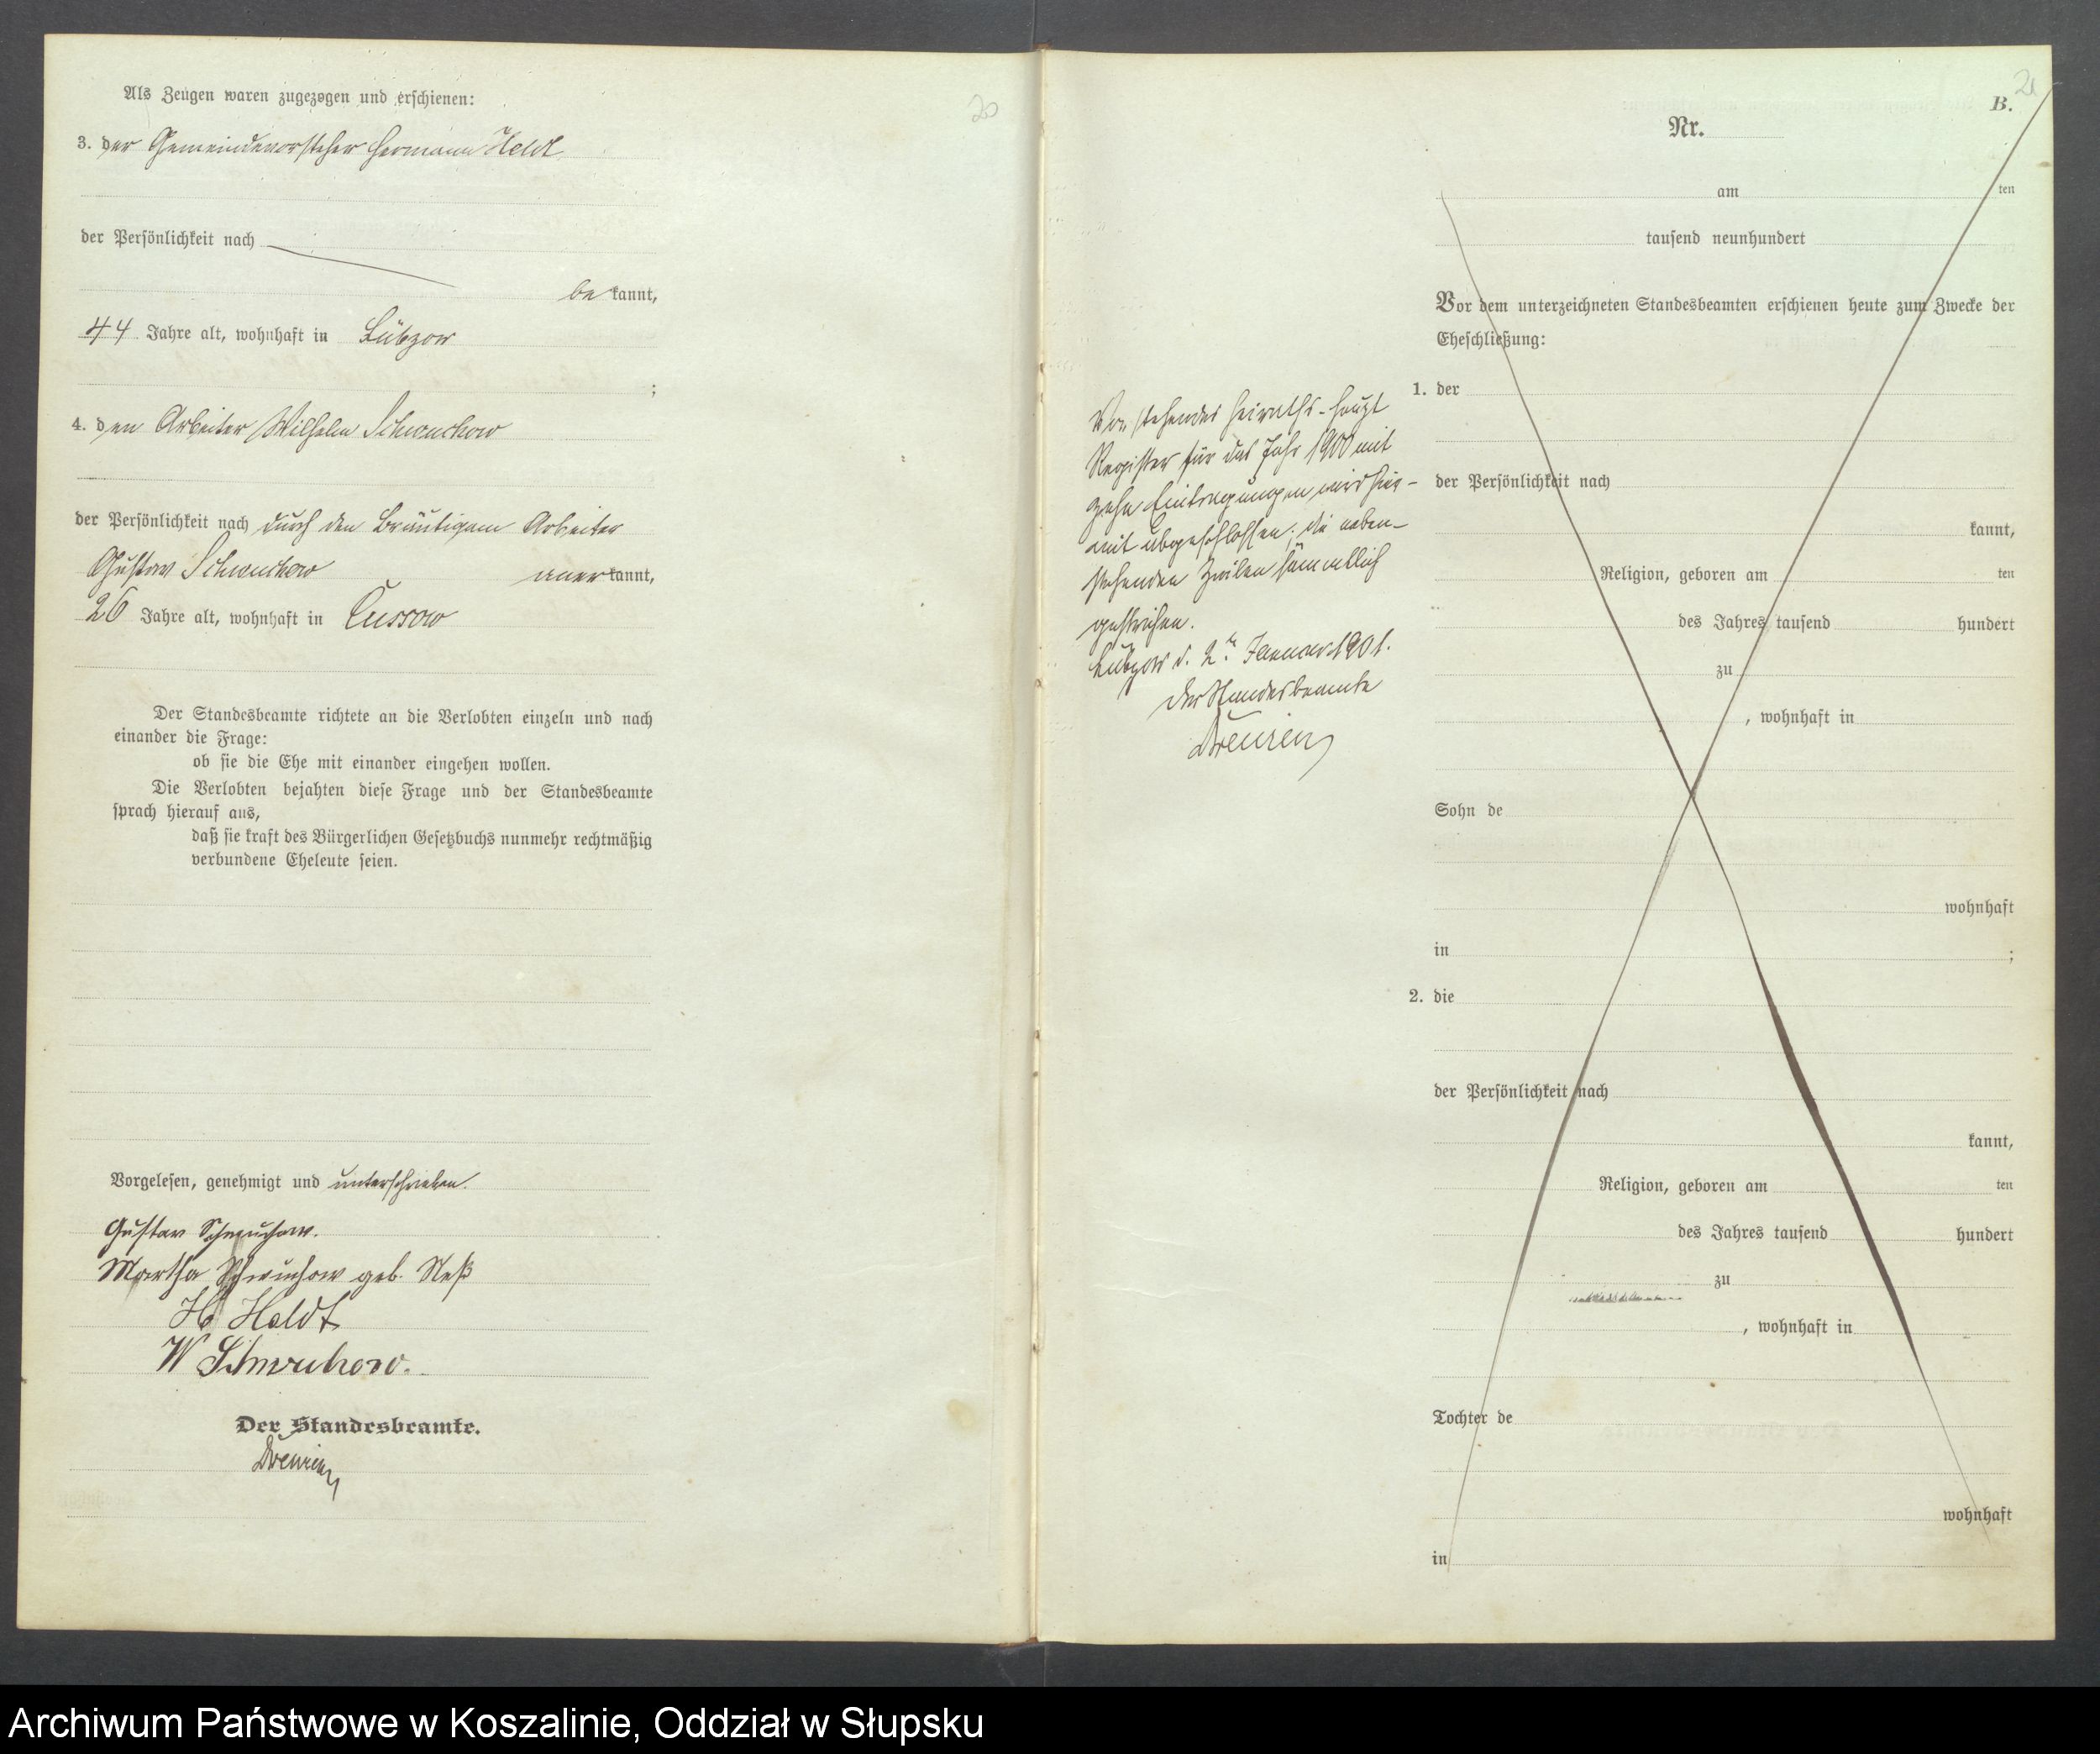 20
Als Zeugen waren zugezogen und erschienen:
3. der Gemeindevorsteher Hermann Held
der Persönlichkeit nach
be kannt,
44 Jahre alt, wohnhaft in Lübzow
;
4. den Arbeiter Wilhelm Schwuchow
der Persönlichkeit nach durch den Bräutigam Arbeiter
Gustav Schwuchow anerkannt,
26 Jahre alt, wohnhaft in Cussow
Der Standesbeamte richtete an die Verlobten einzeln und nach
einander die Frage:
ob sie die Ehe mit einander eingehen wollen.
Die Verlobten bejahten diese Frage und der Standesbeamte
sprach hierauf aus,
daß sie kraft des Bürgerlichen Gesetzbuchs nunmehr rechtmäßig
verbundene Eheleute seien.
Vorgelesen, genehmigt und unterschrieben.
Gustav Schwuchow.
Martha Schwuchow geb. Neß
H Heldt
W Schwuchow.
Der Standesbeamte.
21
B.
Nr.
am ten
tausend neunhundert
Vor dem unterzeichneten Standesbeamten erschienen heute zum Zwecke der
Eheschließung:
1. der
der Persönlichkeit nach
kannt,
Religion, geboren am ten
des Jahres tausend hundert
zu
, wohnhaft in
Sohn de
wohnhaft
in ;
2. die
der Persönlichkeit nach
kannt,
Religion, geboren am ten
des Jahres tausend hundert
zu
, wohnhaft in
Tochter de
wohnhaft
in
Vorstehendes Heiraths-Haupt
Register für das Jahr 1900 mit
zehn Eintragungen wird hier-
mit abgeschlossen; die neben-
stehenden Zeilen sämmtlich
gestrichen.
Lübzow d. 2ten Januar 1901.
Der Standesbeamte
Archiwum Państwowe w Koszalinie, Oddział w Słupsku